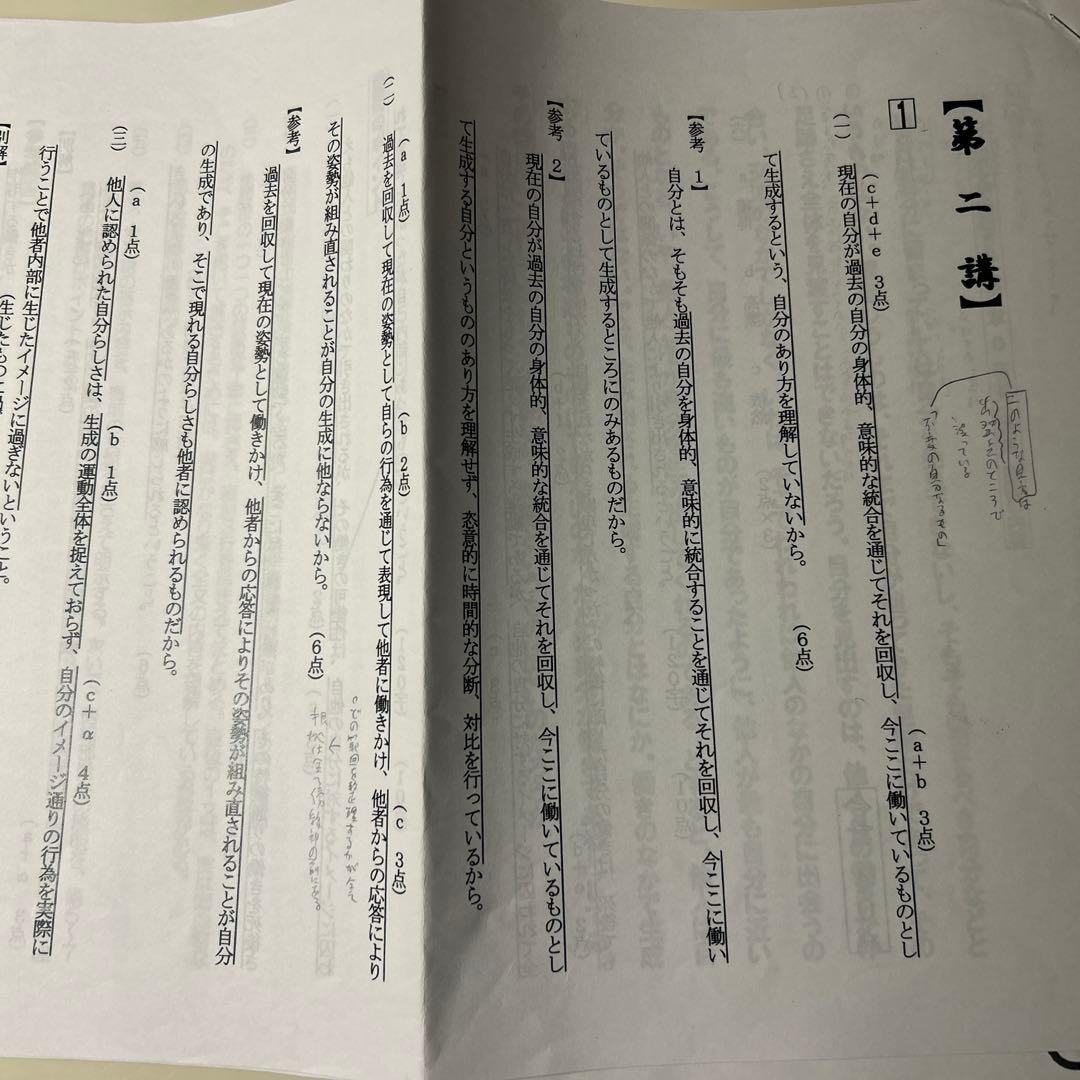 【第二講】
1
(一)
(c+d+e 3点)
(a+b 3点)
現在の自分が過去の自分の身体的、意味的な統合を通じてそれを回収し、今ここに働いているものとし
て生成するという、自分のあり方を理解していないから。 (6点)
【参考 1】
自分とは、そもそも過去の自分を身体的、意味的に統合することを通じてそれを回収し、今ここに働い
ているものとして生成するところにのみあるものだから。
【参考 2】
現在の自分が過去の自分の身体的、意味的な統合を通じてそれを回収し、今ここに働いているものとし
て生成する自分というもののあり方を理解せず、恣意的に時間的な分断、対比を行っているから。
(二)
(a 1点) (b 2点) (c 3点)
過去を回収して現在の姿勢として自らの行為を通じて表現して他者に働きかけ、他者からの応答により
その姿勢が組み直されることが自分の生成に他ならないから。 (6点)
【参考】
過去を回収して現在の姿勢として働きかけ、他者からの応答によりその姿勢が組み直されることが自分
の生成であり、そこで現れる自分らしさも他者に認められるものだから。
(三)
(a 1点) (b 1点) (c+α 4点)
他人に認められた自分らしさは、生成の運動全体を捉えておらず、自分のイメージ通りの行為を実際に
行うことで他者内部に生じたイメージに過ぎないということ。
【別解】